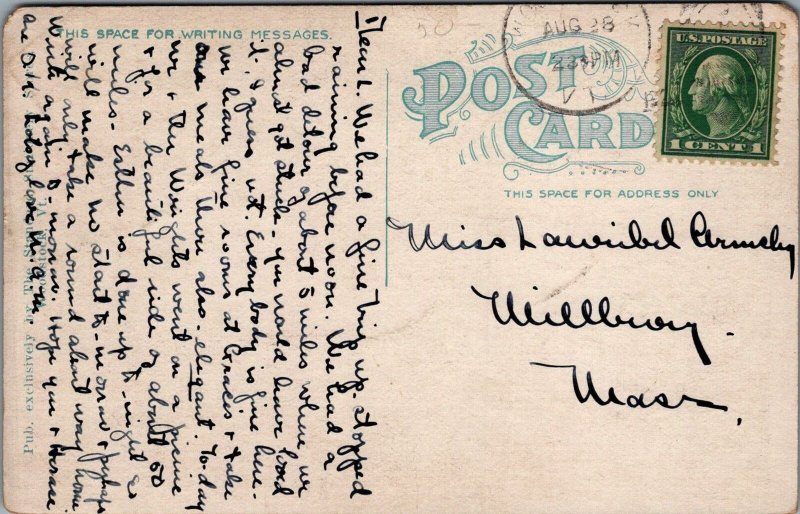 THIS SPACE FOR WRITING MESSAGES.
POST CARD
THIS SPACE FOR ADDRESS ONLY
AUG 28
PM
VT
U.S. POSTAGE
1 CENT 1
50-
Miss Lauribel Armsby
Millbury.
Mass.
Dear L. We had a fine trip up. Stopped
raining before noon. We had a
bad detour of about 5 miles where we
almost got stuck. You would have loved
it, I guess not. Everybody is fine here.
We have fine rooms at Grace's & take
our meals there also - elegant. To-day
we & the Wrights went on a picnic
& for a beautiful ride of about 50
miles. Esther is done up to-night so
will make no start to-morrow & perhaps
will only take a round about way home.
Write again to-morrow. Hope you & Horace
are O.K.
Pub. exclusively by The